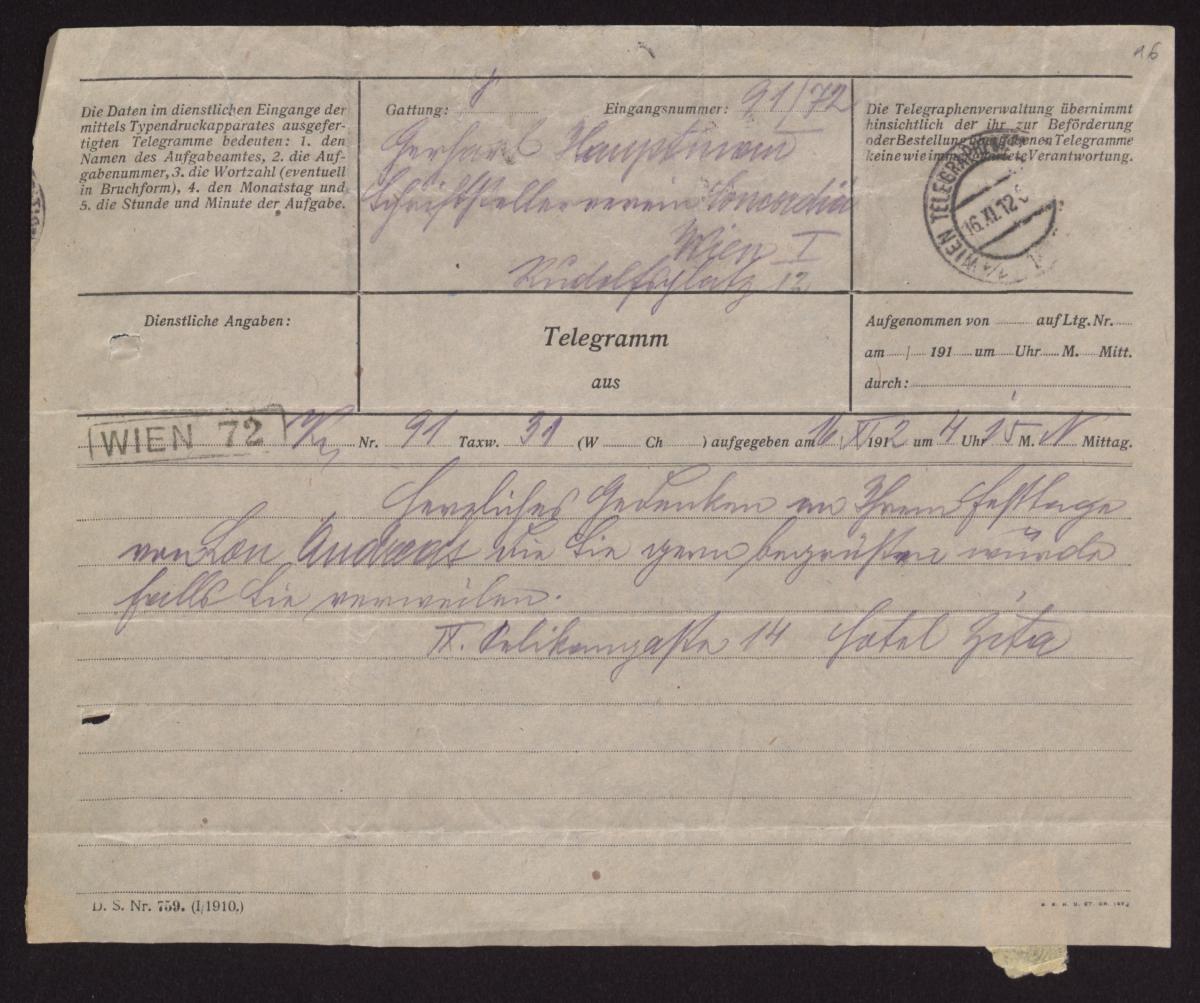 16
Die Daten im dienstlichen Eingange der
mittels Typendruckapparates ausgefer-
tigten Telegramme bedeuten: 1. den
Namen des Aufgabeamtes, 2. die Auf-
gabenummer, 3. die Wortzahl (eventuell
in Bruchform), 4. den Monatstag und
5. die Stunde und Minute der Aufgabe.
Gattung: Eingangsnummer: 91/72
Gerhart Hauptmann
Schriftstellerverein Concordia
Wien I
Rudolfsplatz 12
Die Telegraphenverwaltung übernimmt
hinsichtlich der ihr zur Beförderung
oder Bestellung übergebenen Telegramme
keine wie immer geartete Verantwortung.
WIEN TELEGRAPHEN
16.XI.12
Dienstliche Angaben:
Telegramm
aus
Aufgenommen von auf Ltg. Nr.
am 191 um Uhr M. Mitt.
durch:
WIEN 72 Nr. 91 Taxw. 31 (W Ch ) aufgegeben am 16 XI 1912 um 4 Uhr 15 M. N Mittag.
Herzliches Gedenken an Ihrem Festtage
von Lou Andreas die Sie gern begrüßen würde
falls Sie verweilen.
IX. Pelikangaße 14 Hotel Zita
D. S. Nr. 759. (I/1910.)